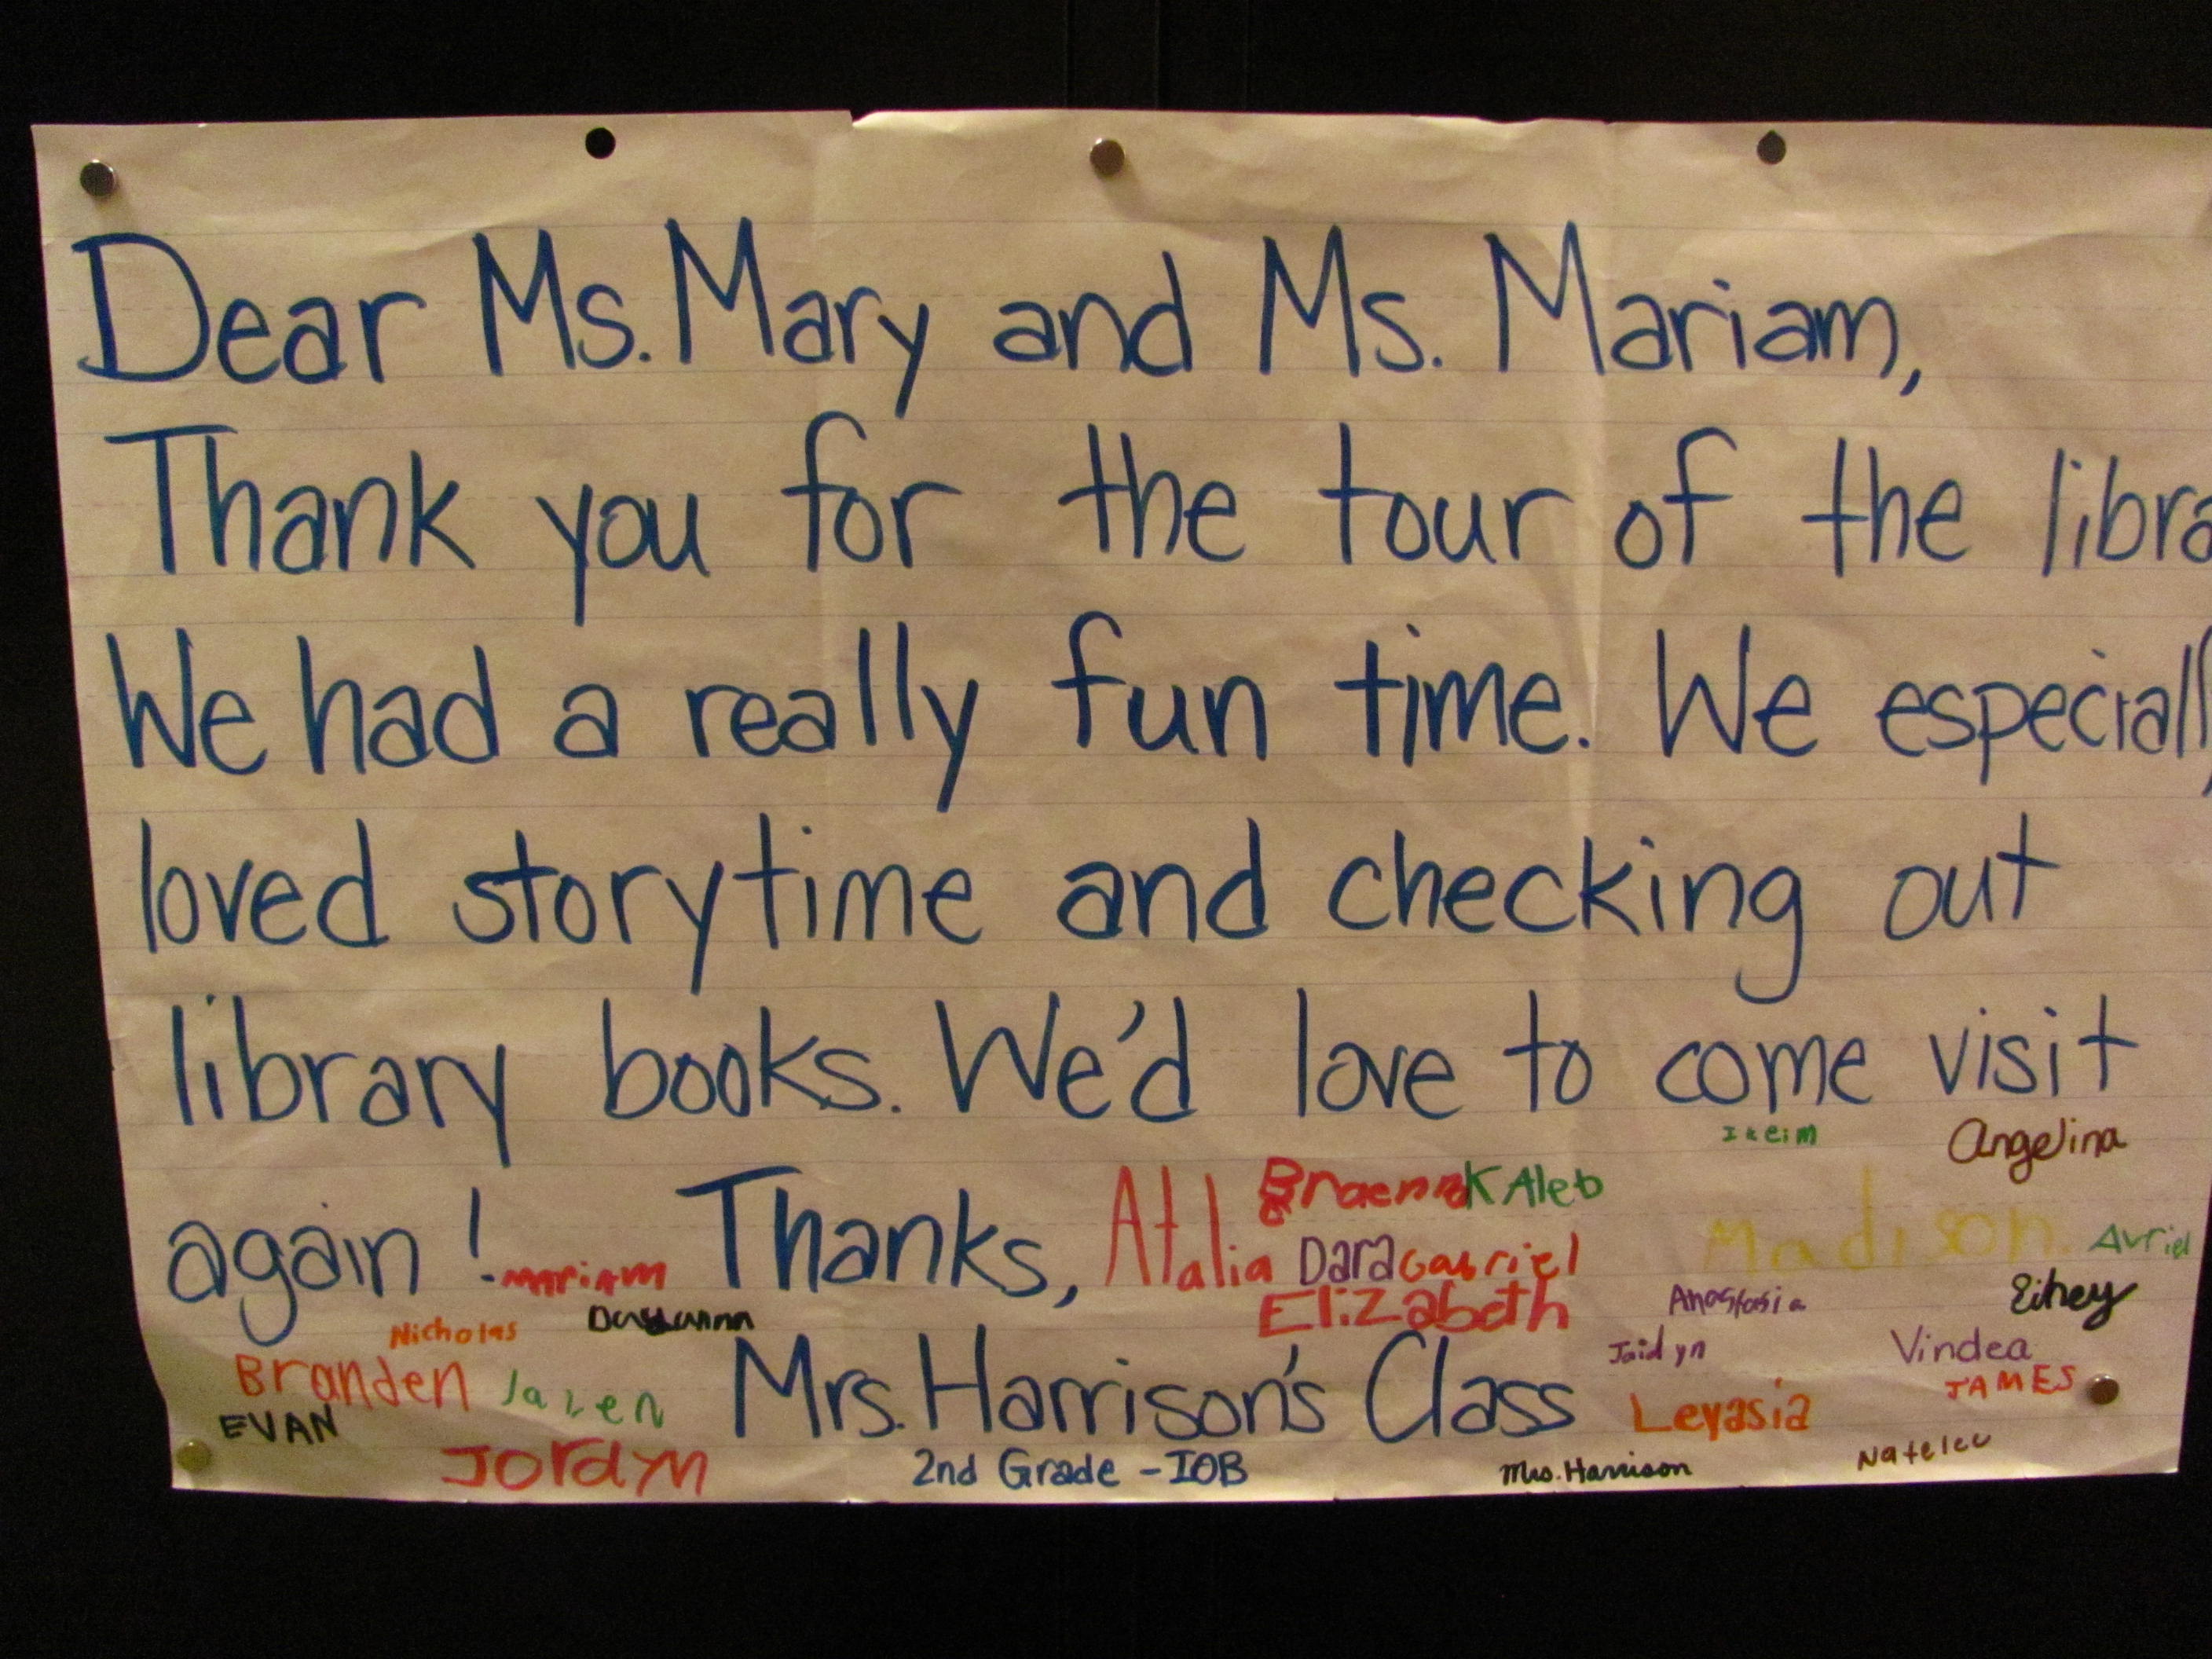 Dear Ms. Mary and Ms. Mariam,
Thank you for the tour of the libra
We had a really fun time. We especially
loved storytime and checking out
library books. We'd love to come visit
again! Thanks,
Mrs. Harrison's Class
2nd Grade - IOB
Angelina
Atalia
KAleb
Madison
Avriel
mariam
Dara
Gabriel
Elizabeth
Anastasia
Nicholas
Jaidyn
Vindea
JAMES
Branden
Jalen
EVAN
Leyasia
Jordyn
Mrs. Harrison